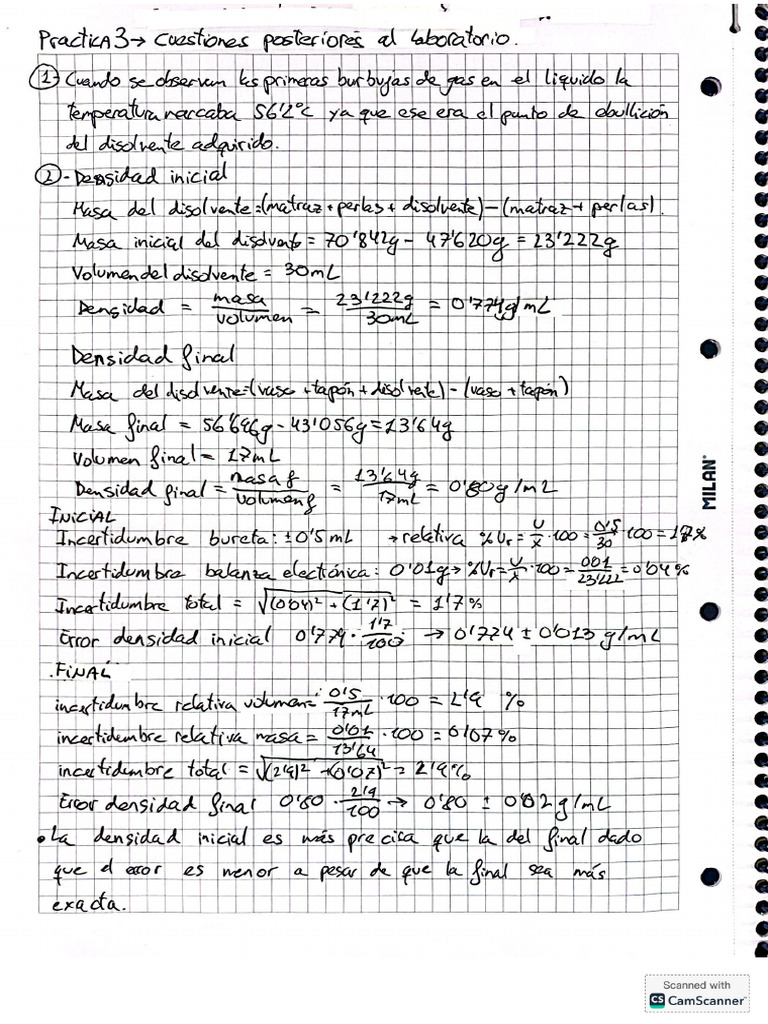 Practica 3 → Cuestiones posteriores al laboratorio.
① Cuando se observan las primeras burbujas de gas en el liquido la
temperatura marcaba 56'2°C ya que ese era el punto de ebullición
del disolvente adquirido.
② - Densidad inicial
Masa del disolvente=(matraz+perlas+disolvente)-(matraz+perlas).
Masa inicial del disolvente = 70'842g - 47'620g = 23'222g
Volumen del disolvente = 30mL
Densidad = masa/volumen = 23'222g/30mL = 0'774g/mL
Densidad final
Masa del disolvente=(vaso+tapón+disolvente)-(vaso+tapón)
Masa final = 56'696g - 43'056g = 13'64g
Volumen final = 17mL
Densidad final = masa f/volumen f = 13'64g/17mL = 0'80g/mL
INICIAL
Incertidumbre bureta: ±0'5mL → relativa %Ur = U/x · 100 = 0'5/30 · 100 = 1'7%
Incertidumbre balanza electrónica: 0'01g → %Ur = U/x · 100 = 0'01/23'222 = 0'04%
Incertidumbre total = √(0'04)² + (1'7)² = 1'7%
Error densidad inicial 0'774 · 1'7/100 → 0'774 ± 0'013 g/mL
.FINAL
incertidumbre relativa volumen = 0'5/17mL · 100 = 2'9 %
incertidumbre relativa masa = 0'01/13'64 · 100 = 0'07%
incertidumbre total = √(2'9)² + (0'07)² = 2'9%
Error densidad final 0'80 · 2'9/100 → 0'80 ± 0'02 g/mL
• La densidad inicial es más precisa que la del final dado
que el error es menor a pesar de que la final sea más
exacta.
MILAN
Scanned with
CS CamScanner